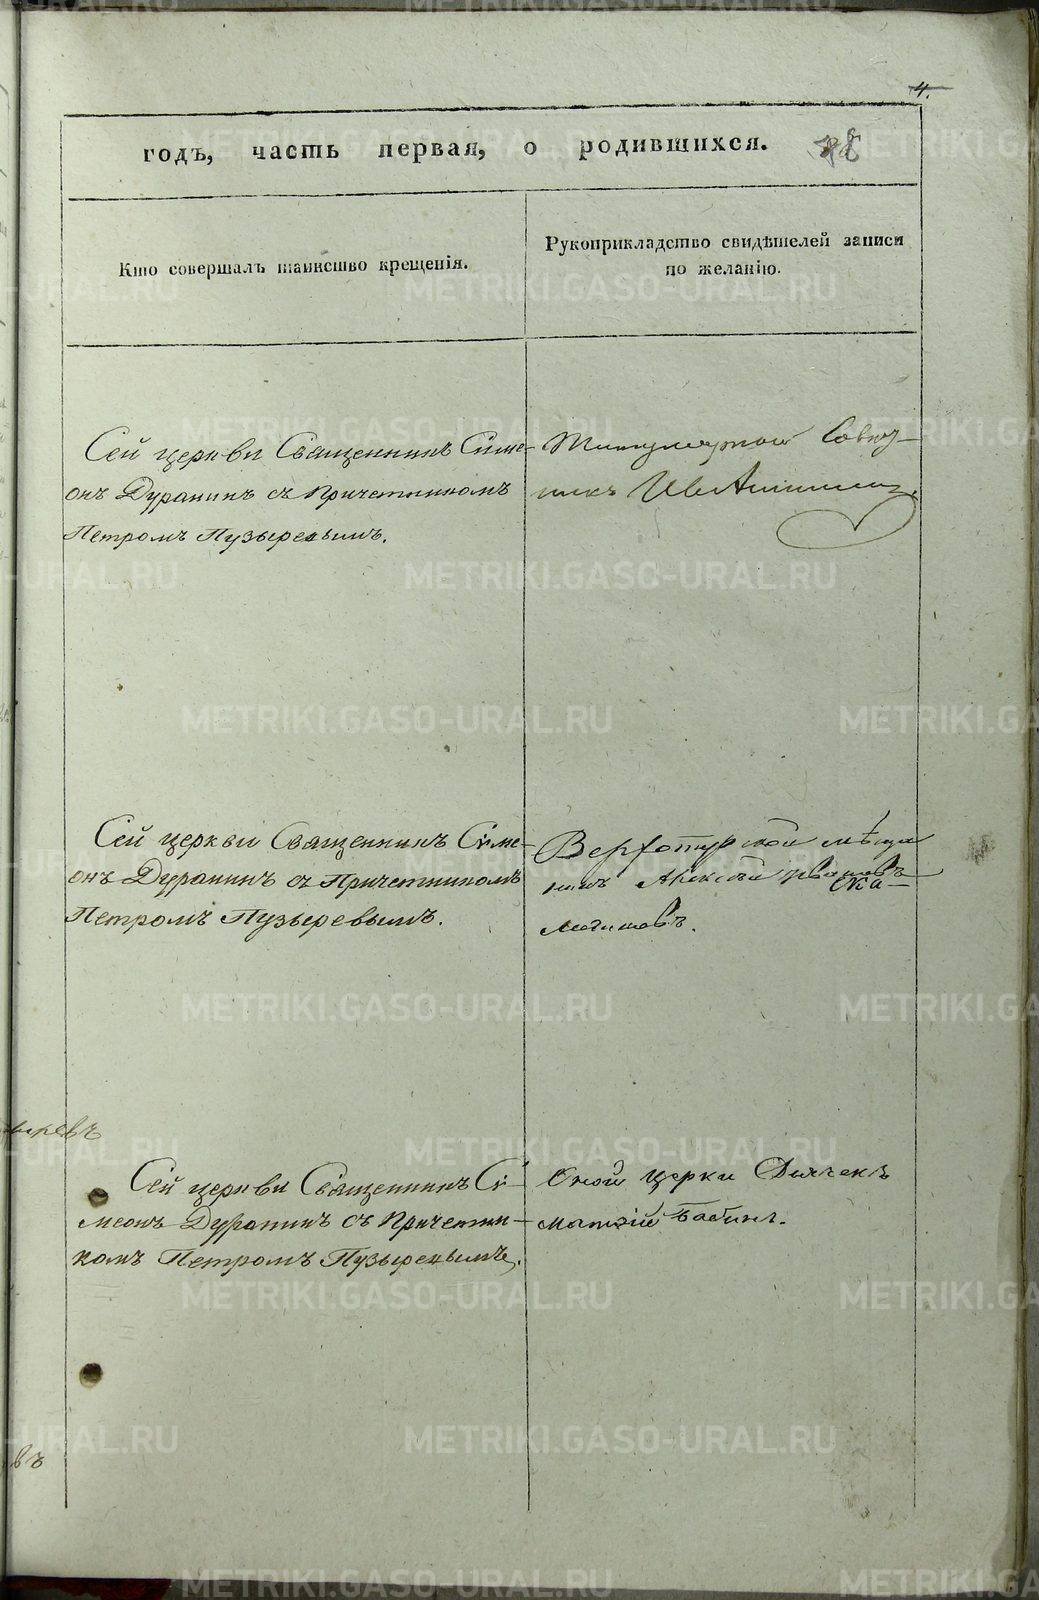 4.
годъ, часть первая, о родившихся. 28
Кто совершалъ таинство крещенія.
Рукоприкладство свидѣтелей записи
по желанію.
Сей церкви Священникъ Симе-
онъ Дуранинъ съ Причетникомъ
Петромъ Пузыревымъ.
Титулярной Совет-
никъ
Сей церкви Священникъ Симе-
онъ Дуранинъ съ Причетникомъ
Петромъ Пузыревымъ.
Верхотурской мѣща
нинъ Алексѣй Ивановъ
ыревъ
Сей церкви Священникъ Си-
меонъ Дуранинъ съ Причетни-
комъ Петромъ Пузыревымъ.
Оной церкви Дьячекъ
Матвей Бабинъ.
въ
METRIKI.GASO-URAL.RU